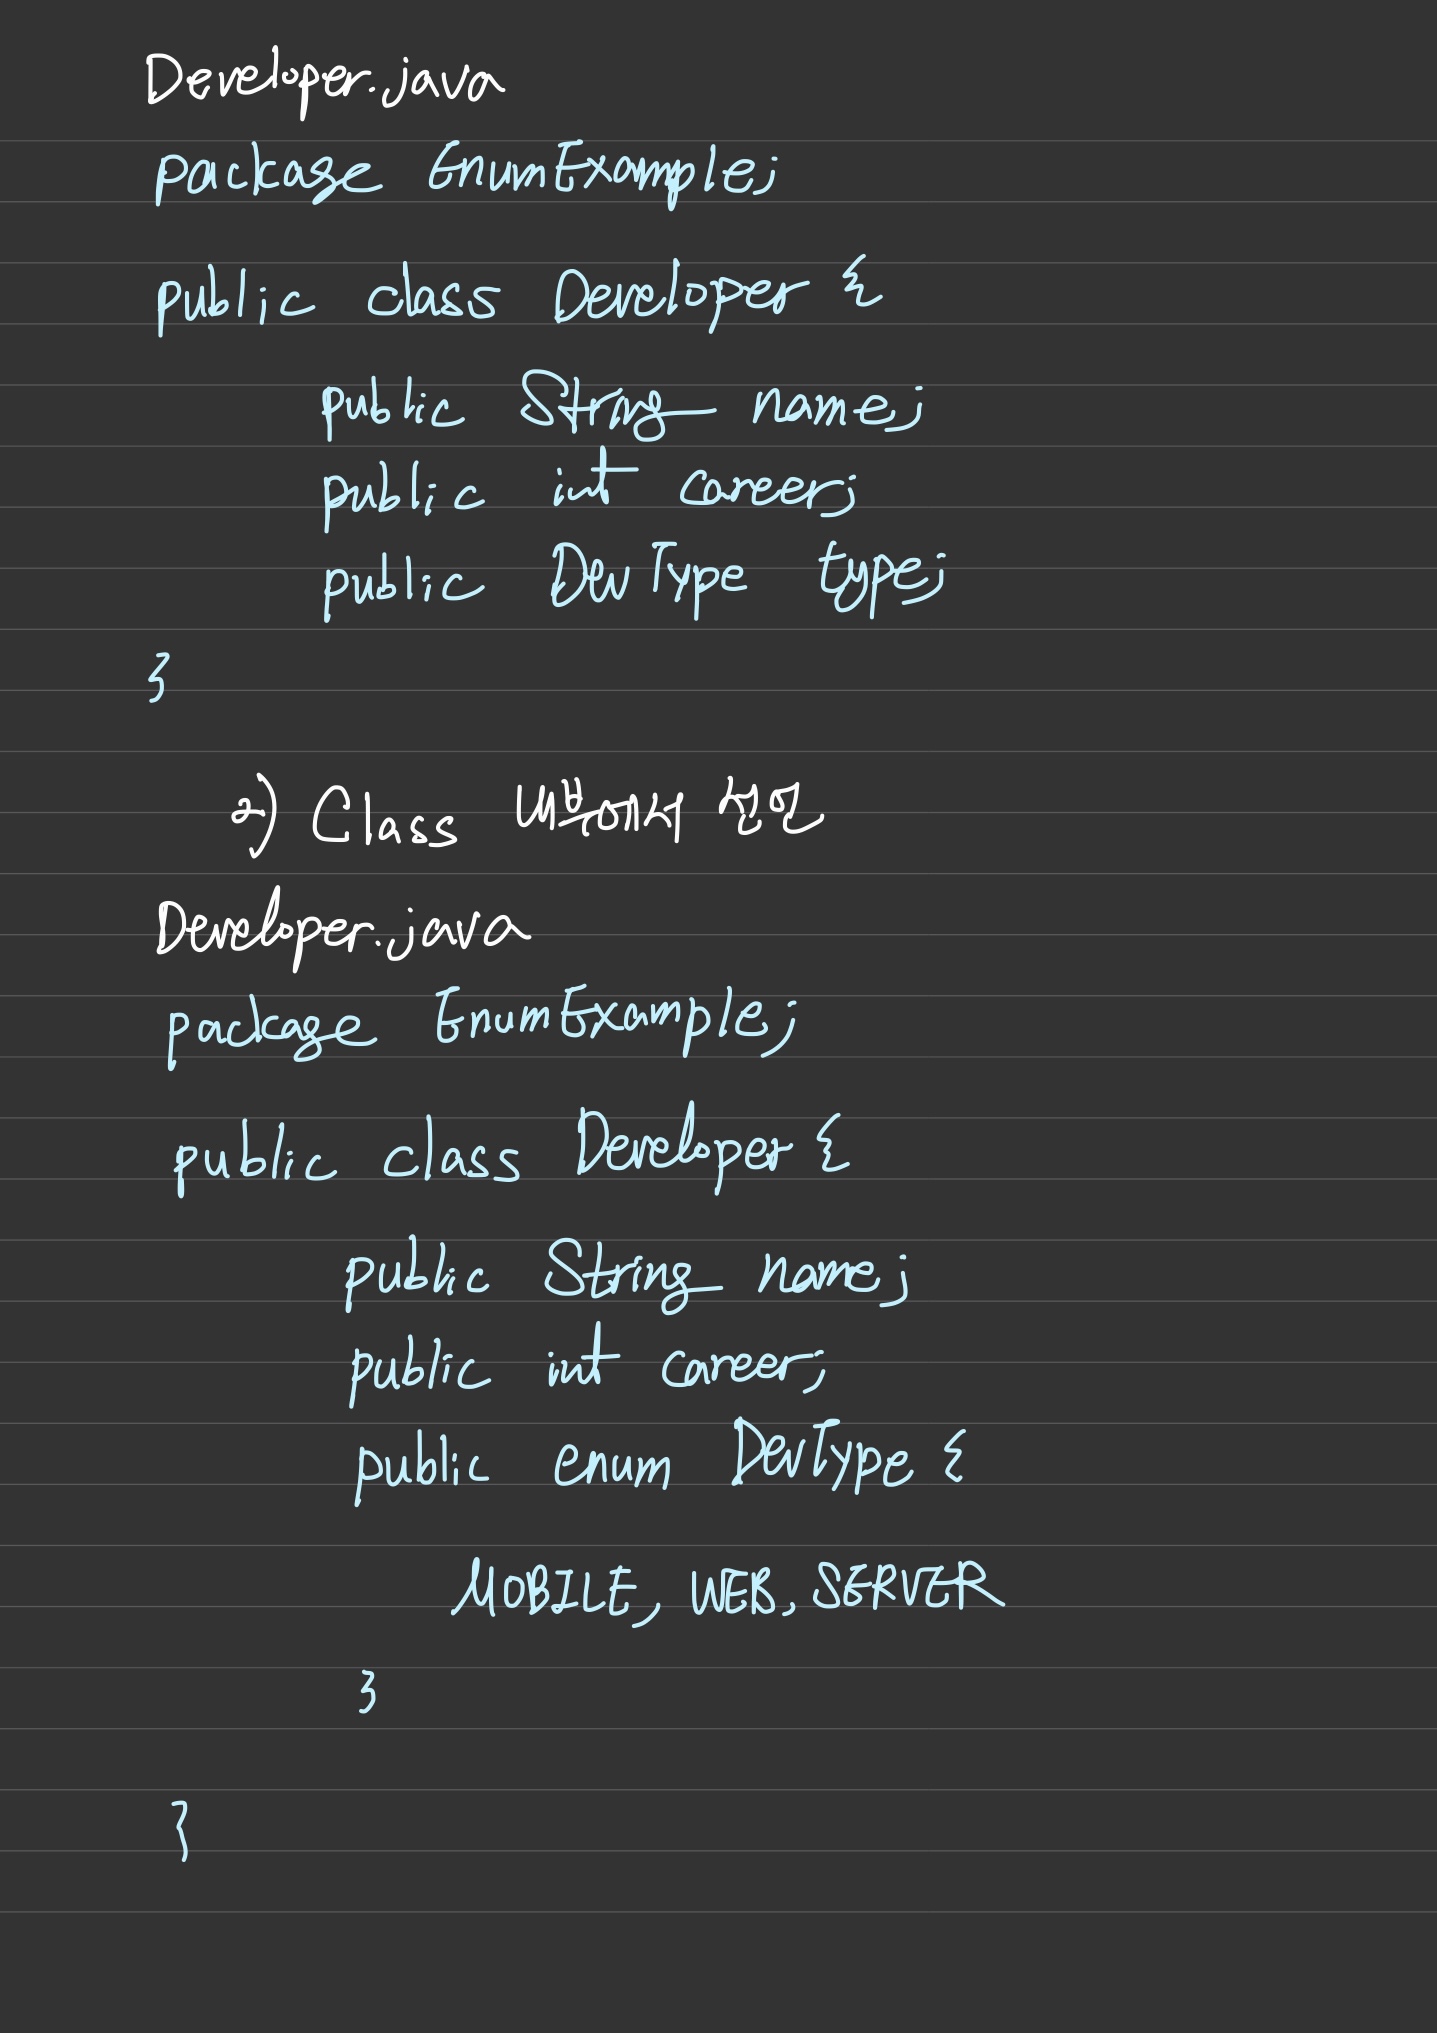 Developer.java
package EnumExample;
public class Developer {
public String name;
public int career;
public DevType type;
}
2) Class 내부에서 선언
Developer.java
package EnumExample;
public class Developer {
public String name;
public int career;
public enum DevType {
MOBILE, WEB, SERVER
}
}